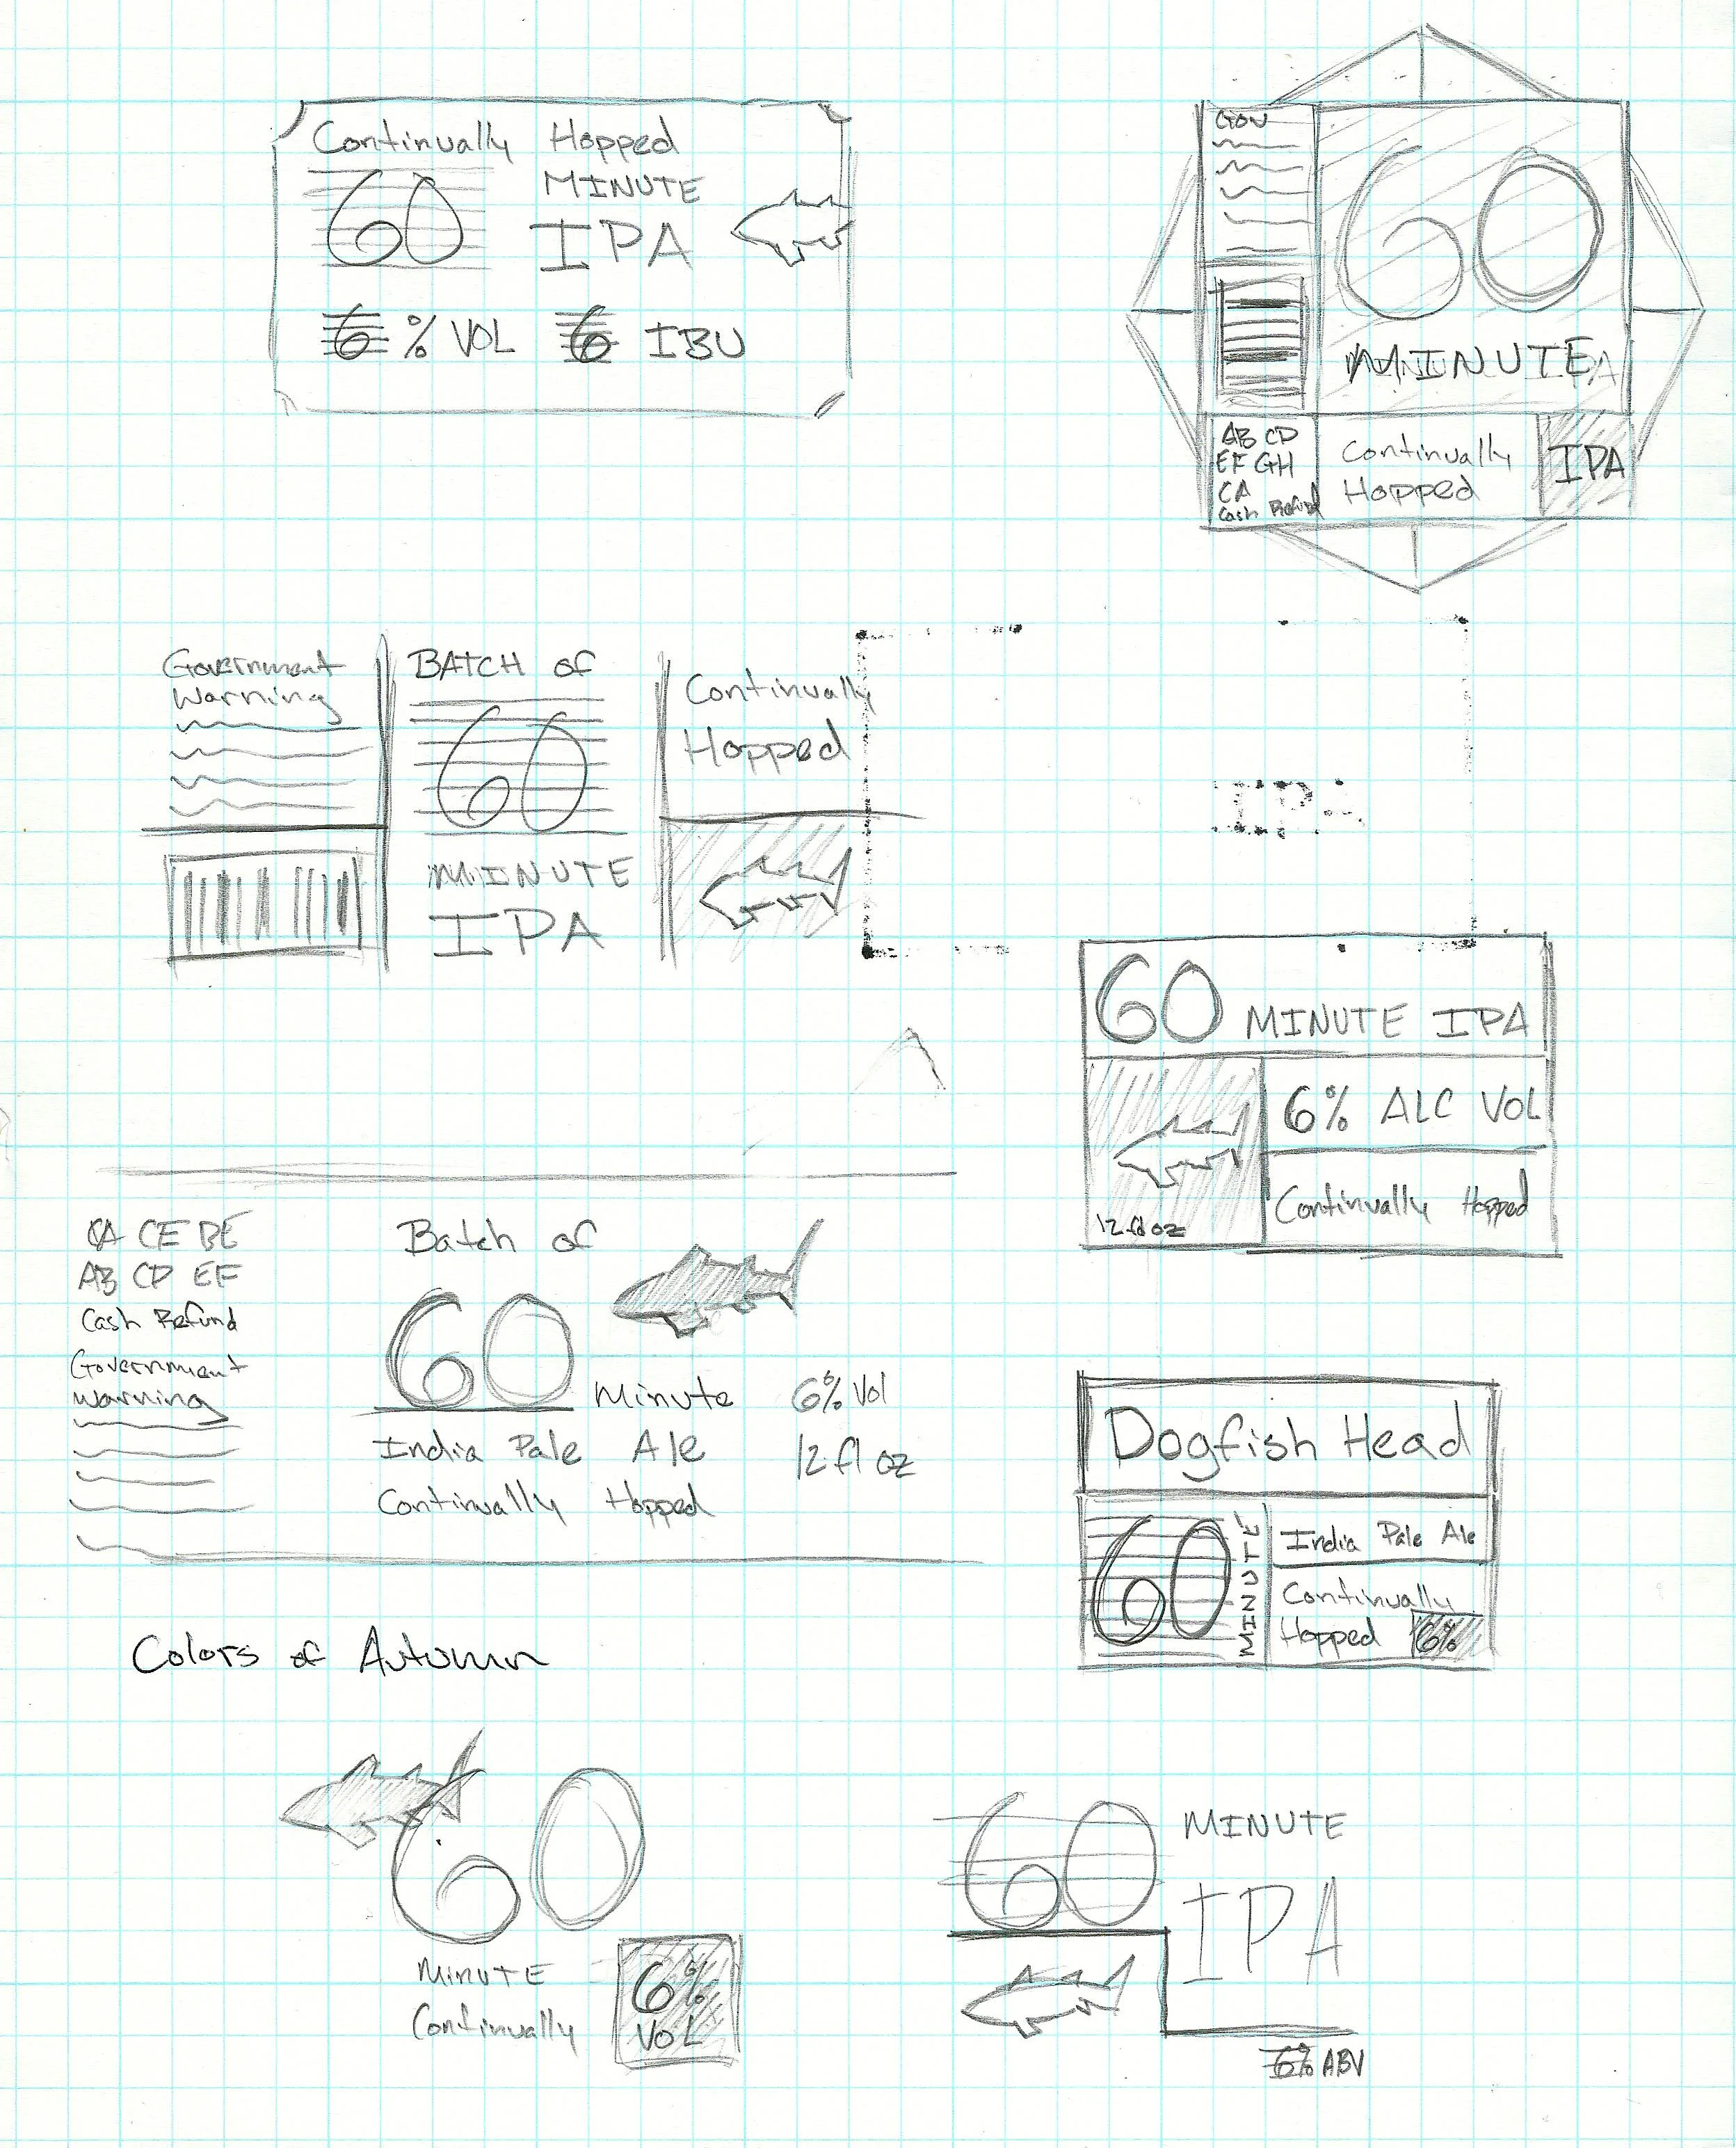 Continually Hopped
60 MINUTE
IPA
6 % VOL 6 IBU
GOV
60
MINUTE
AB CD
EF GH
CA
Cash Refund
Continually
Hopped
IPA
Government
Warning
BATCH of
60
MINUTE
IPA
Continually
Hopped
IPA
60 MINUTE IPA
6% ALC VOL
12 fl oz
Continually Hopped
CA CE BE
AB CD EF
Cash Refund
Government
Warning
Batch of
60 Minute
India Pale Ale
Continually Hopped
6% Vol
12 fl oz
Dogfish Head
60 MINUTE
India Pale Ale
Continually
Hopped 6%
Colors of Autumn
60
MINUTE
Continually
6%
VOL
60 MINUTE
IPA
6% ABV